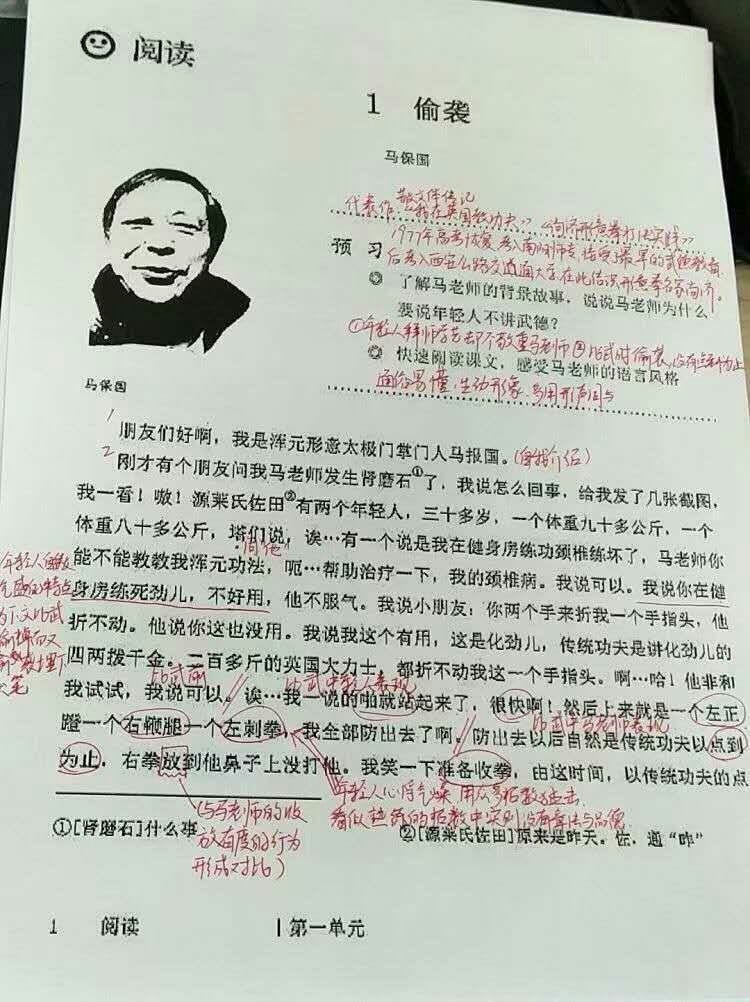 阅读
1 偷袭
马保国
散文体传记
代表作“我在英国教功夫”
预 习
1977年高考恢复
◎ 了解马老师的背景故事，说说马老师为什么
要说年轻人不讲武德？
①年轻人拜师学艺却不敬重马老师②比武时偷袭，没有点到为止
◎ 快速阅读课文，感受马老师的语言风格
通俗易懂，生动形象，多用形声词
马保国
1
朋友们好啊，我是浑元形意太极门掌门人马报国。（自我介绍）
2
刚才有个朋友问我马老师发生肾磨石①了，我说怎么回事，给我发了几张截图，
我一看！嗷！源莱氏佐田②有两个年轻人，三十多岁，一个体重九十多公斤，一个
体重八十多公斤，塔们说，诶…有一个说是我在健身房练功颈椎练坏了，马老师你
同“他”
能不能教教我浑元功法，呃…帮助治疗一下，我的颈椎病。我说可以。我说你在健
身房练死劲儿，不好用，他不服气。我说小朋友：你两个手来折我一个手指头，他
折不动。他说你这也没用。我说我这个有用，这是化劲儿，传统功夫是讲化劲的
四两拨千金。二百多斤的英国大力士，都折不动我这一个手指头。啊…哈！他非和
比武前
比武中年轻人表现
我试试，我说可以。诶…我一说的啪就站起来了，很快啊！然后上来就是一个左正
比武中马老师表现
蹬一个右鞭腿一个左刺拳，我全部防出去了啊。防出去以后自然是传统功夫以点到
为止，右拳放到他鼻子上没打他。我笑一下准备收拳，由这时间，以传统功夫的点
年轻人心浮气燥，用众多招数攻击
看似热闹的招数中实则没有章法与品德
（与马老师的收
放有度的行为
形成对比）
①[肾磨石]什么事
②[源莱氏佐田]原来是昨天。佐，通“昨”
1 阅读 | 第一单元